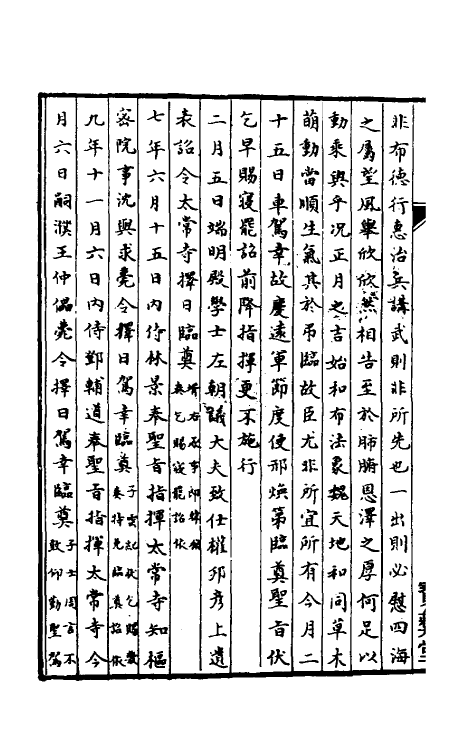 非布德行惠治兵講武則非所先也一出則必慰四海
之屬望風舉欣欣然相告至於肺腑恩澤之厚何足以
動乘輿乎况正月之吉始和布法象魏天地和同草木
萌動當順生氣其於弔臨故臣尤非所宜所有今月二
十五日車駕幸故慶遠軍節度使邢煥第臨奠聖旨伏
乞早賜寢罷詔前降指揮更不施行
二月五日端明殿學士左朝議大夫致仕權邦彥上遺
表詔令太常寺擇日臨奠
奏乞賜寢罷詔依
七年六月十五日內侍林景奉聖旨指揮太常寺知樞
密院事沈與求薨令擇日駕幸臨奠
奏特免臨奠詔依
九年十一月六日內侍鄭輔道奉聖旨指揮太常寺今
月六日嗣濮王仲儡薨令擇日駕幸臨奠
子士周言不
敢仰勤聖駕